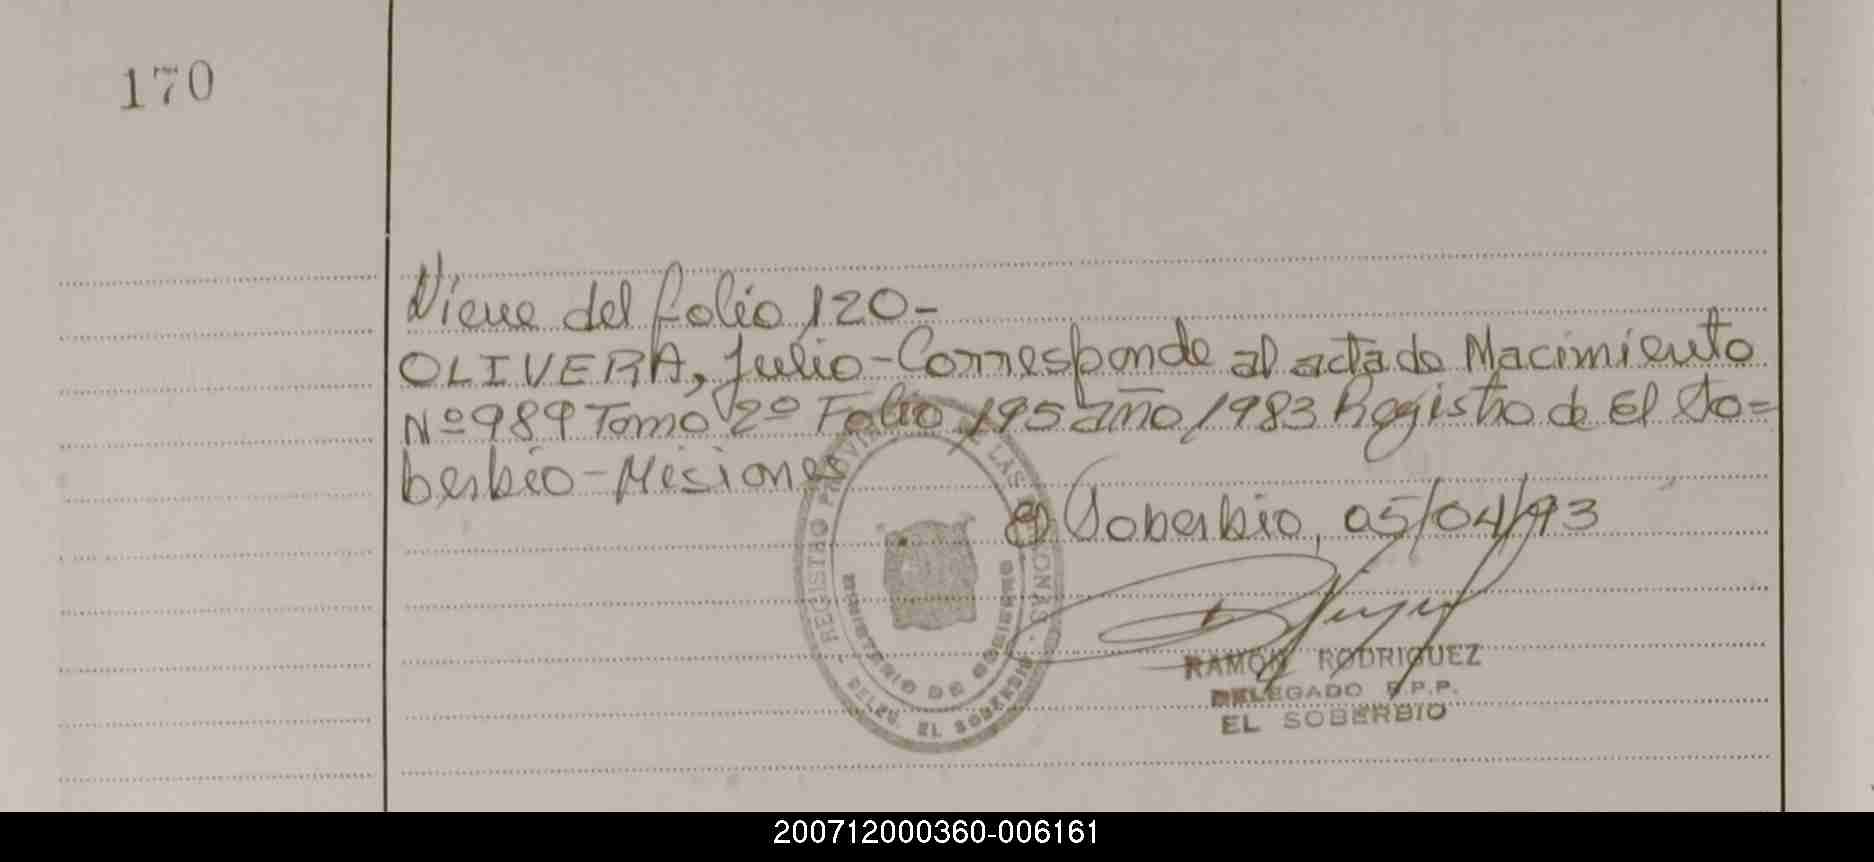 170
Viene del folio 120-
OLIVERA, Julio-Corresponde al acta de Nacimiento
Nº 989 Tomo 2º Folio 195 año 1983 Registro de El So=
berbio-Misiones
El Soberbio, 05/04/93
REGISTRO PROVINCIAL DE LAS PERSONAS
MINISTERIO DE GOBIERNO
DELEG. EL SOBERBIO
RAMÓN RODRIGUEZ
DELEGADO R.P.P.
EL SOBERBIO
200712000360-006161